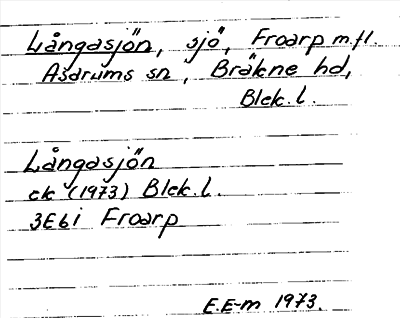 Långasjön, sjö, Froarp m.fl.
Asarums sn, Bräkne hd,
Blek.l.
Långasjön
ek (1973) Blek.l.
3E6i Froarp
E.E-m 1973.